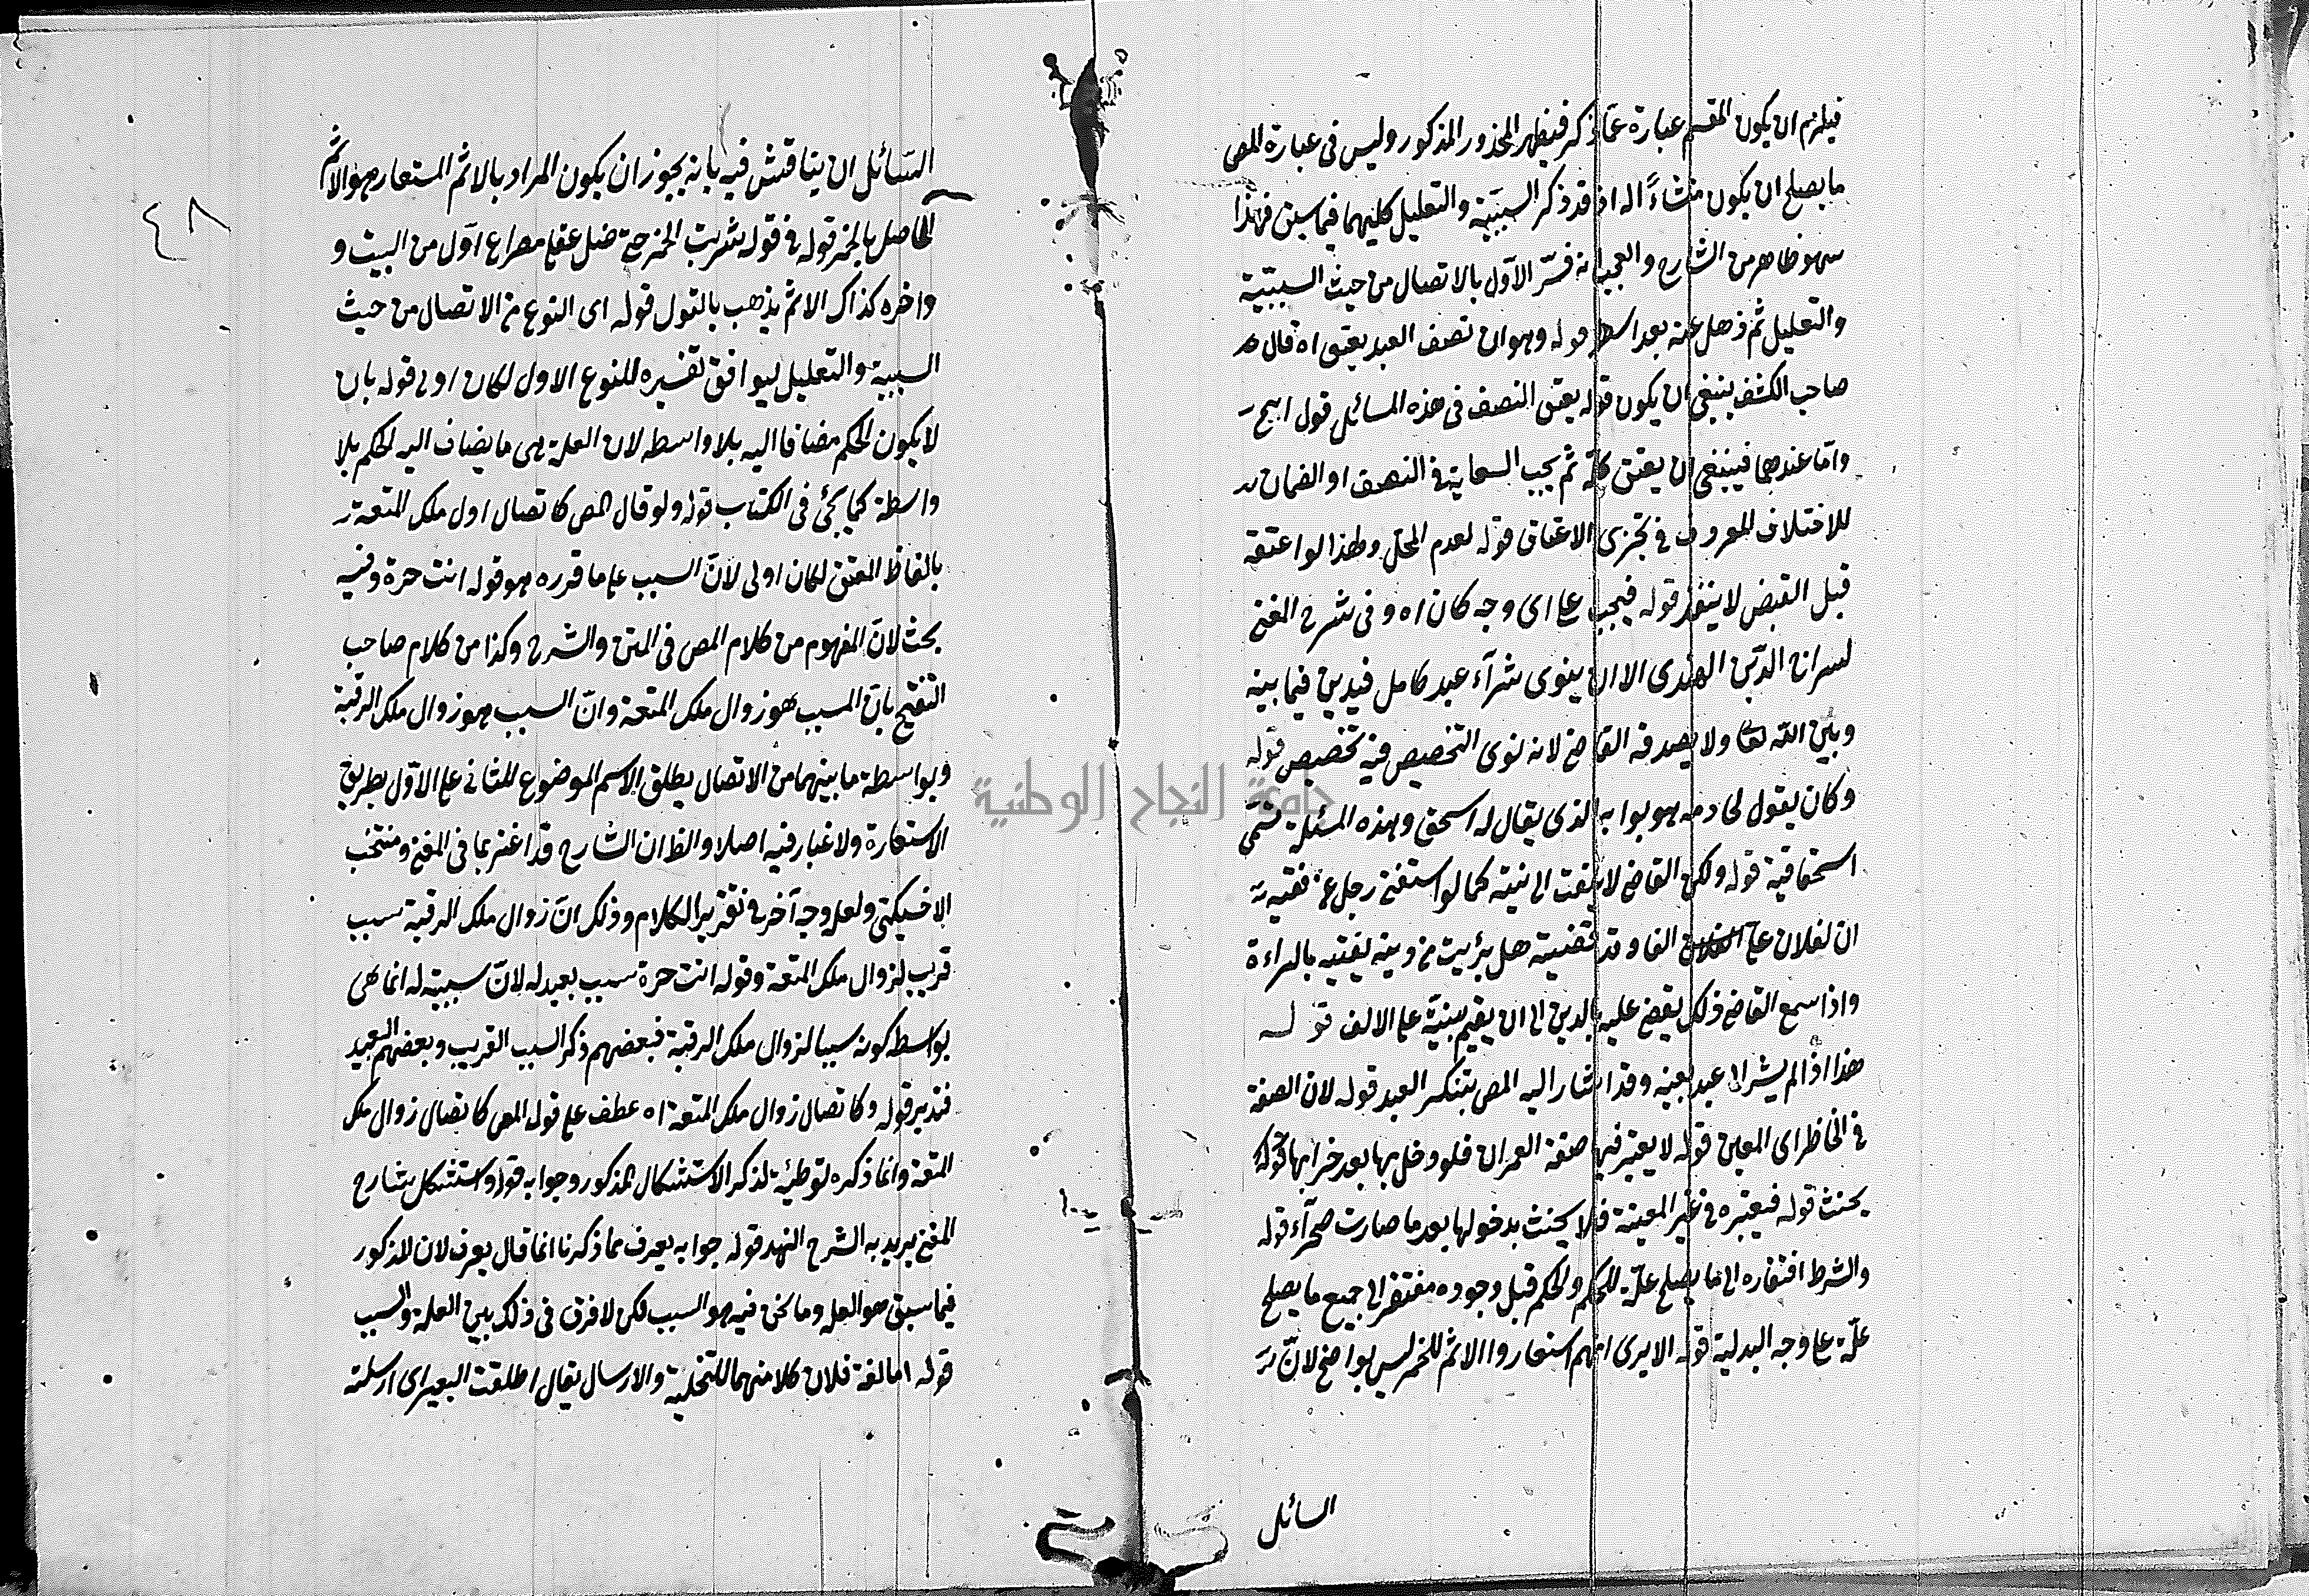 فيلزم ان يكون المقسم عبارة عما ذكر فيظهر المحذور المذكور وليس فى عبارة المص
ما يصلح ان يكون منشاءً له اذ قد ذكر السببية والتعليل كليهما فيما سبق فهذا
سهو ظاهر من الشارح والعجب انه فسّر الاول بالاتصال من حيث السببيّة
والتعليل ثم ذهل عنه بعد اسطر قوله وهو ان نصف العبد يعتق اه قال
صاحب الكشف ينبغى ان يكون قوله يعتق النصف فى هذه المسائل قول ابيح
وامّا عندهما فينبغى ان يعتق كله ثم يجب السعاية فى النصف او الضمان
للاختلاف المعروف فى تجزى الاعتاق قوله لعدم المحل ولهذا لو اعتقه
قبل القبض لا ينفذ قوله فيجب على اى وجه كان اه وفى شرح المغنى
لسراج الدّين الهندى الا ان ينوى شرآء عبد كامل فيدين فيما بينه
وبين الله تعا ولا يصدقه القاضى لانه نوى التخصيص فيه تخصيص قوله
وكان يقول لخادمه هو بوابه الذى يقال له اسحق وهذه المسئلة تسمى
اسحقاقية قوله ولكن القاضى لا يلتفت الى نيته كما لو استفتى رجل عن فقيه
ان لفلان على الفا وقد قضيته هل برئيت من دينه يفتيه بالبراءة
واذا سمع القاضى ذلك يقضى عليه بالدين الى ان يقيم بينة على الالف قوله
هذا اذا لم يشر الى عبد بعينه وقد اشار اليه المص بتنكير العبد قوله لان الصفة
فى الحاظر اى المعين قوله لا يعتبر فيها صفة العمران فلو دخل بها بعد خرابها قوله
يحنث قوله فيعتبره فى غير المعينة فلا يحنث بدخولها بعد ما صارت صحرآء قوله
والشرط افتقاره الى ما يصلح علّة للحكم والحكم قبل وجوده مفتقر الى جميع ما يصلح
علّة على وجه البدلية قوله الا يرى انهم استعاروا الاثم للخمر ليس بواضح لانّ
السائل
جامعة النجاح الوطنية
٤٨
السّائل ان يناقش فيه بانه يجوز ان يكون المراد بالاثم المستعار هو الاثم
الحاصل بالخمر قوله فى قوله شربت الخمر حتى ضل عقلى مصراع اوّل من البيت و
واخره كذاك الاثم يذهب بالقول قوله اى النوع من الاتصال من حيث
السببية والتعليل ليوافق تفسيره للنوع الاول لكان اولى قوله بان
لا يكون الحكم مضافا اليه بلا واسطه لان العلة هى ما يضاف اليه الحكم بلا
واسطة كما يجئ فى الكتاب قوله ولو قال المص كاتصال اول ملك المتعة
بالفاظ العتق لكان اولى لانّ السبب على ما قرره هو قوله انت حرة وفيه
بحث لانّ المفهوم من كلام المص فى المتن والشرح وكذا من كلام صاحب
التنقيح بانّ المسبب هو زوال ملك المتعة وانّ السبب هو زوال ملك الرقبة
وبواسطة ما بينهما من الاتصال يطلق الاسم الموضوع للثانى على الاوّل بطريق
الاستعارة ولا غبار فيه اصلا والظ ان الشارح قد اغتر بما فى المغنى ومنتخب
الاخسيكتى ولعل وجه آخر فى تقرير الكلام وذلك انّ زوال ملك الرقبة سبب
قريب لزوال ملك المتعة وقوله انت حرة سبب بعيد له لانّ سببيته له انما هى
بواسطه كونه سببا لزوال ملك الرقبة فبعضهم ذكر السبب القريب وبعضهم البعيد
فتدبر قوله وكاتصال زوال ملك المتعة اه عطف على قول المص كاتصال زوال ملك
المتعة وانما ذكره توطئية لذكر الاستشكال المذكور وجوابه قوله واستشكل شارح
المغنى يريد به الشرح الهندى قوله جوابه يعرف مما ذكرنا انما قال يعرف لان المذكور
فيما سبق هو العله وما نحن فيه هو السبب لكن لا فرق فى ذلك بين العلة والسبب
قوله اما لغة فلان كلا منهما للتخلية والارسال يقال اطلقت البعير اى ارسلته